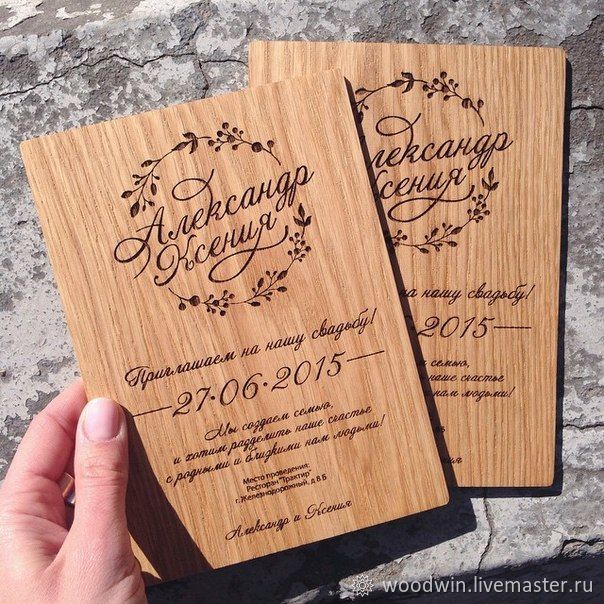 Александр
Ксения
Приглашаем на нашу свадьбу!
27·06·2015
Мы создаем семью,
и хотим разделить наше счастье
с родными и близкими нам людьми!
Место проведения:
Ресторан "Трактир"
г. Железнодорожный, д 8 Б
Александр и Ксения
лександр
Ксения
на нашу свадьбу!
06·2015
семью,
наше счастье
нам людьми!
Ксения
woodwin.livemaster.ru